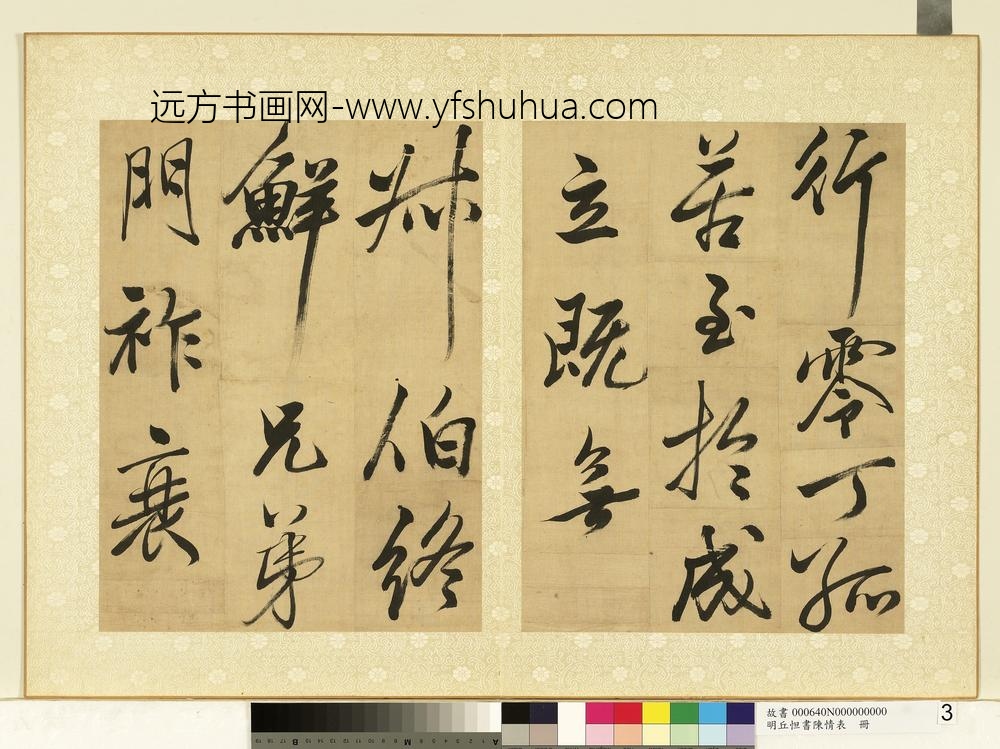 远方书画网-www.yfshuhua.com
行零丁孤
苦至於成
立既無
叔伯終
鮮兄弟
門祚衰
故書 000640N000000000
明丘怛書陳情表 冊
3